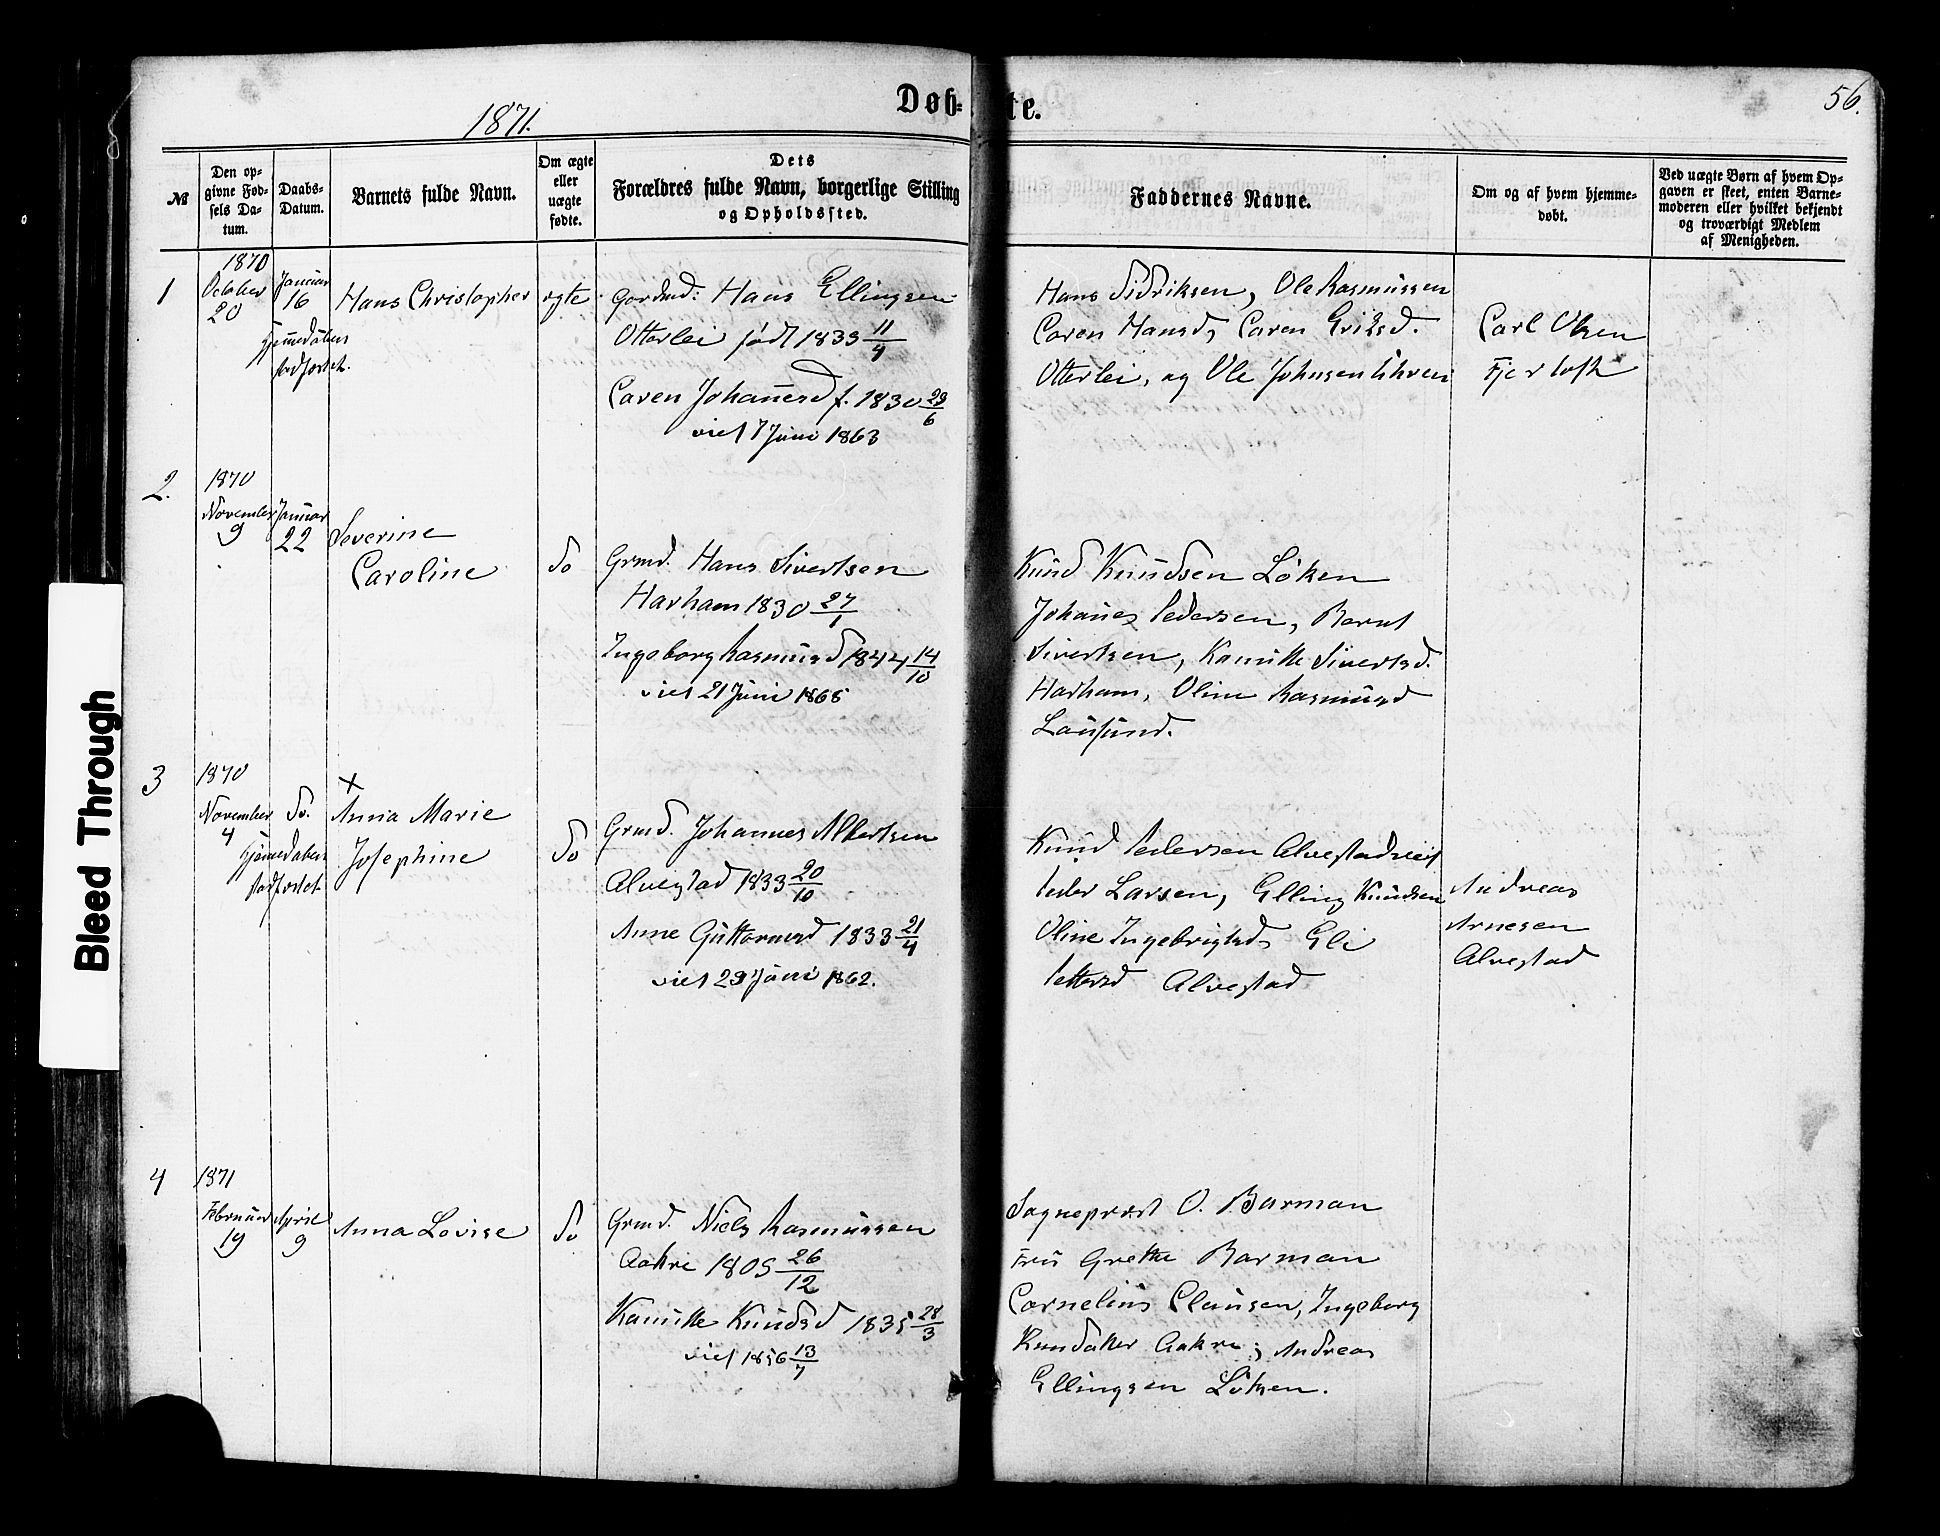 1871.
Døb-
te.
56.
№
Den op-
givne Fød-
sels Da-
tum.
Daabs-
Datum.
Barnets fulde Navn.
Om ægte
eller
uægte
fødte.
Dets
Forældres fulde Navn, borgerlige Stilling
og Opholdssted.
Faddernes Navne.
Om og af hvem hjemme-
døbt.
Ved uægte Børn af hvem Op-
gaven er skeet, enten Barne-
moderen eller hvilket bekjendt
og troværdigt Medlem
af Menigheden.
1
1870
October
20
Januar
16
Hjemmedaaben
stadfæstet.
Hans Christopher
ægte
Gordmd: Hans Ellingsen
Otterlei født 1833 11/4
Caren Johannesd f. 1830 29/6
viet 7 Juni 1863
Hans Didriksen, Ole Rasmussen
Caren Hansd, Caren Eriksd.
Otterlei, og Ole Johnsen
Carl Olsen
Fjertoft
2.
1870
November
9
Januar
22
Severine
Caroline
do
Grmd. Hans Sivertsen
Harham 1830 27/1
Ingeborg Rasmusd 1844 14/10
viet 21 Juni 1868
Knud Knudsen Løken
Johannes Pedersen, Bernt
Sivertsen, Kanutte Sivertsd.
Harham, Oline Rasmusd
Lausund.
3
1870
November
4
do.
Hjemmedaaben
stadfæstet
x
Anna Marie
Josephine
do
Grmd. Johannes Albertsen
Alvestad 1833 20/10
Anne Guttormsd 1833 21/4
viet 29 Juni 1862.
Knud Pedersen Alvestadvig
Peder Larsen, Elling Knudsen
Oline Ingebrigtsd, Eli
Pettersd Alvestad
Andreas
Arnesen
Alvestad
4
1871
Februar
19
April
9
Anna Lovise
do
Grmd. Niels Rasmussen
Aakre 1805 26/12
Kanutte Knudsd 1835 28/3
viet 1856 13/7
Sognepræst O. Barman
Fru Grethe Barman
Cornelius Clausen, Ingeborg
Aakre, Andreas
Ellingsen Løken.
Bleed Through